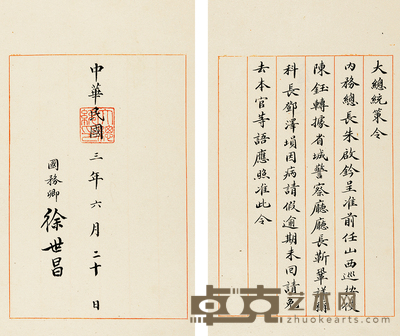 大總統策令
內務總長朱啟鈐呈准前任山西巡按使
陳鈺轉據省城警察廳廳長靳鞏詳稱
科長鄧澤塤因病請假逾期未回請免
去本官等語應照准此令
中華民國三年六月二十日
國務卿 徐世昌
艺术网
zhuokearts.com